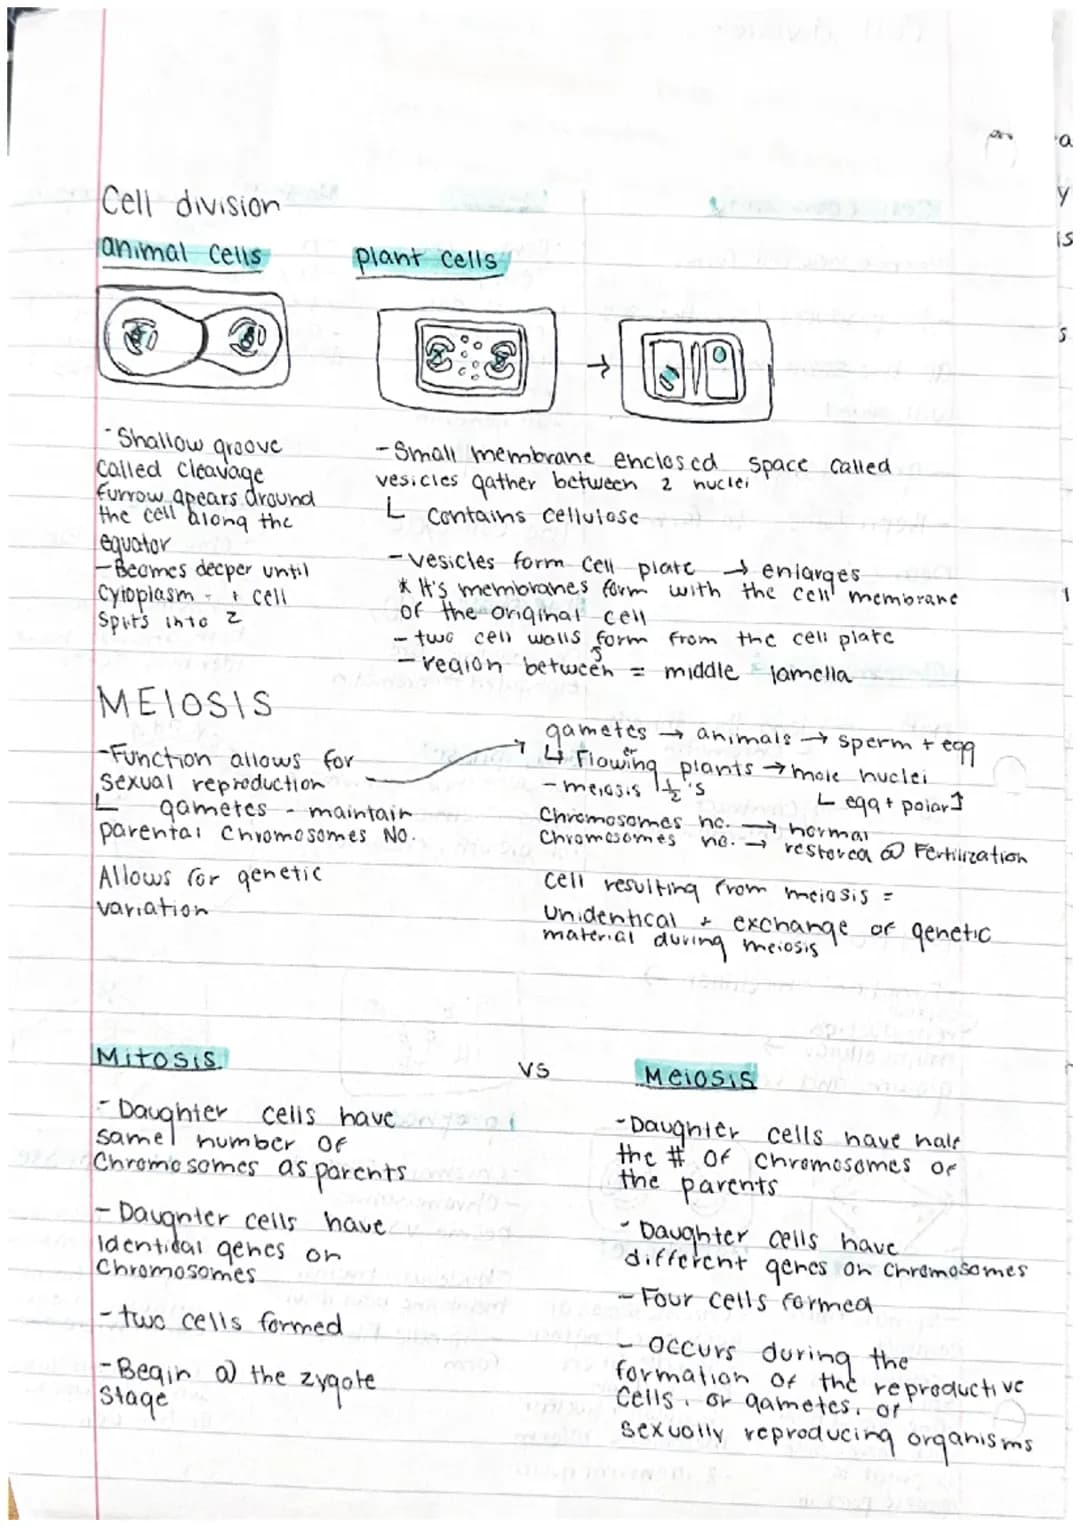 Cell division
animal cells
plant cells
- Shallow groove
called cleavage
furrow apears around
the cell along the
equator
- Becomes deeper until
cytoplasm + cell
Spits into 2
- Small membrane enclosed space called
vesicles gather between 2 nuclei
↳ contains cellulose
- vesicles form cell plate → enlarges
* It's membranes form with the cell membrane
of the original cell
- two cell walls form from the cell plate
- region between = middle lamella
MEIOSIS
- Function allows for
sexual reproduction
↳ gametes - maintain
parental chromosomes NO.
Allows for genetic
variation
gametes → animals → sperm + egg
↳ Flowing plants → male nuclei
er
↳ egg + polar
- meiosis ½'s
Chromosomes no. → normal
Chromosomes no. → restored @ Fertilization
cell resulting from meiosis =
unidentical + exchange of genetic
material during meiosis
Mitosis
vs
Meiosis
- Daughter cells have
same number of
Chromosomes as parents
- Daughter cells have
identical genes on
Chromosomes
- two cells formed
- Begin @ the zygote
stage
- Daughter cells have half
the # of chromosomes of
the parents
- Daughter cells have
different genes on chromosomes
- Four cells formed
- occurs during the
formation of the reproductive
cells, or gametes, of
sexually reproducing organisms